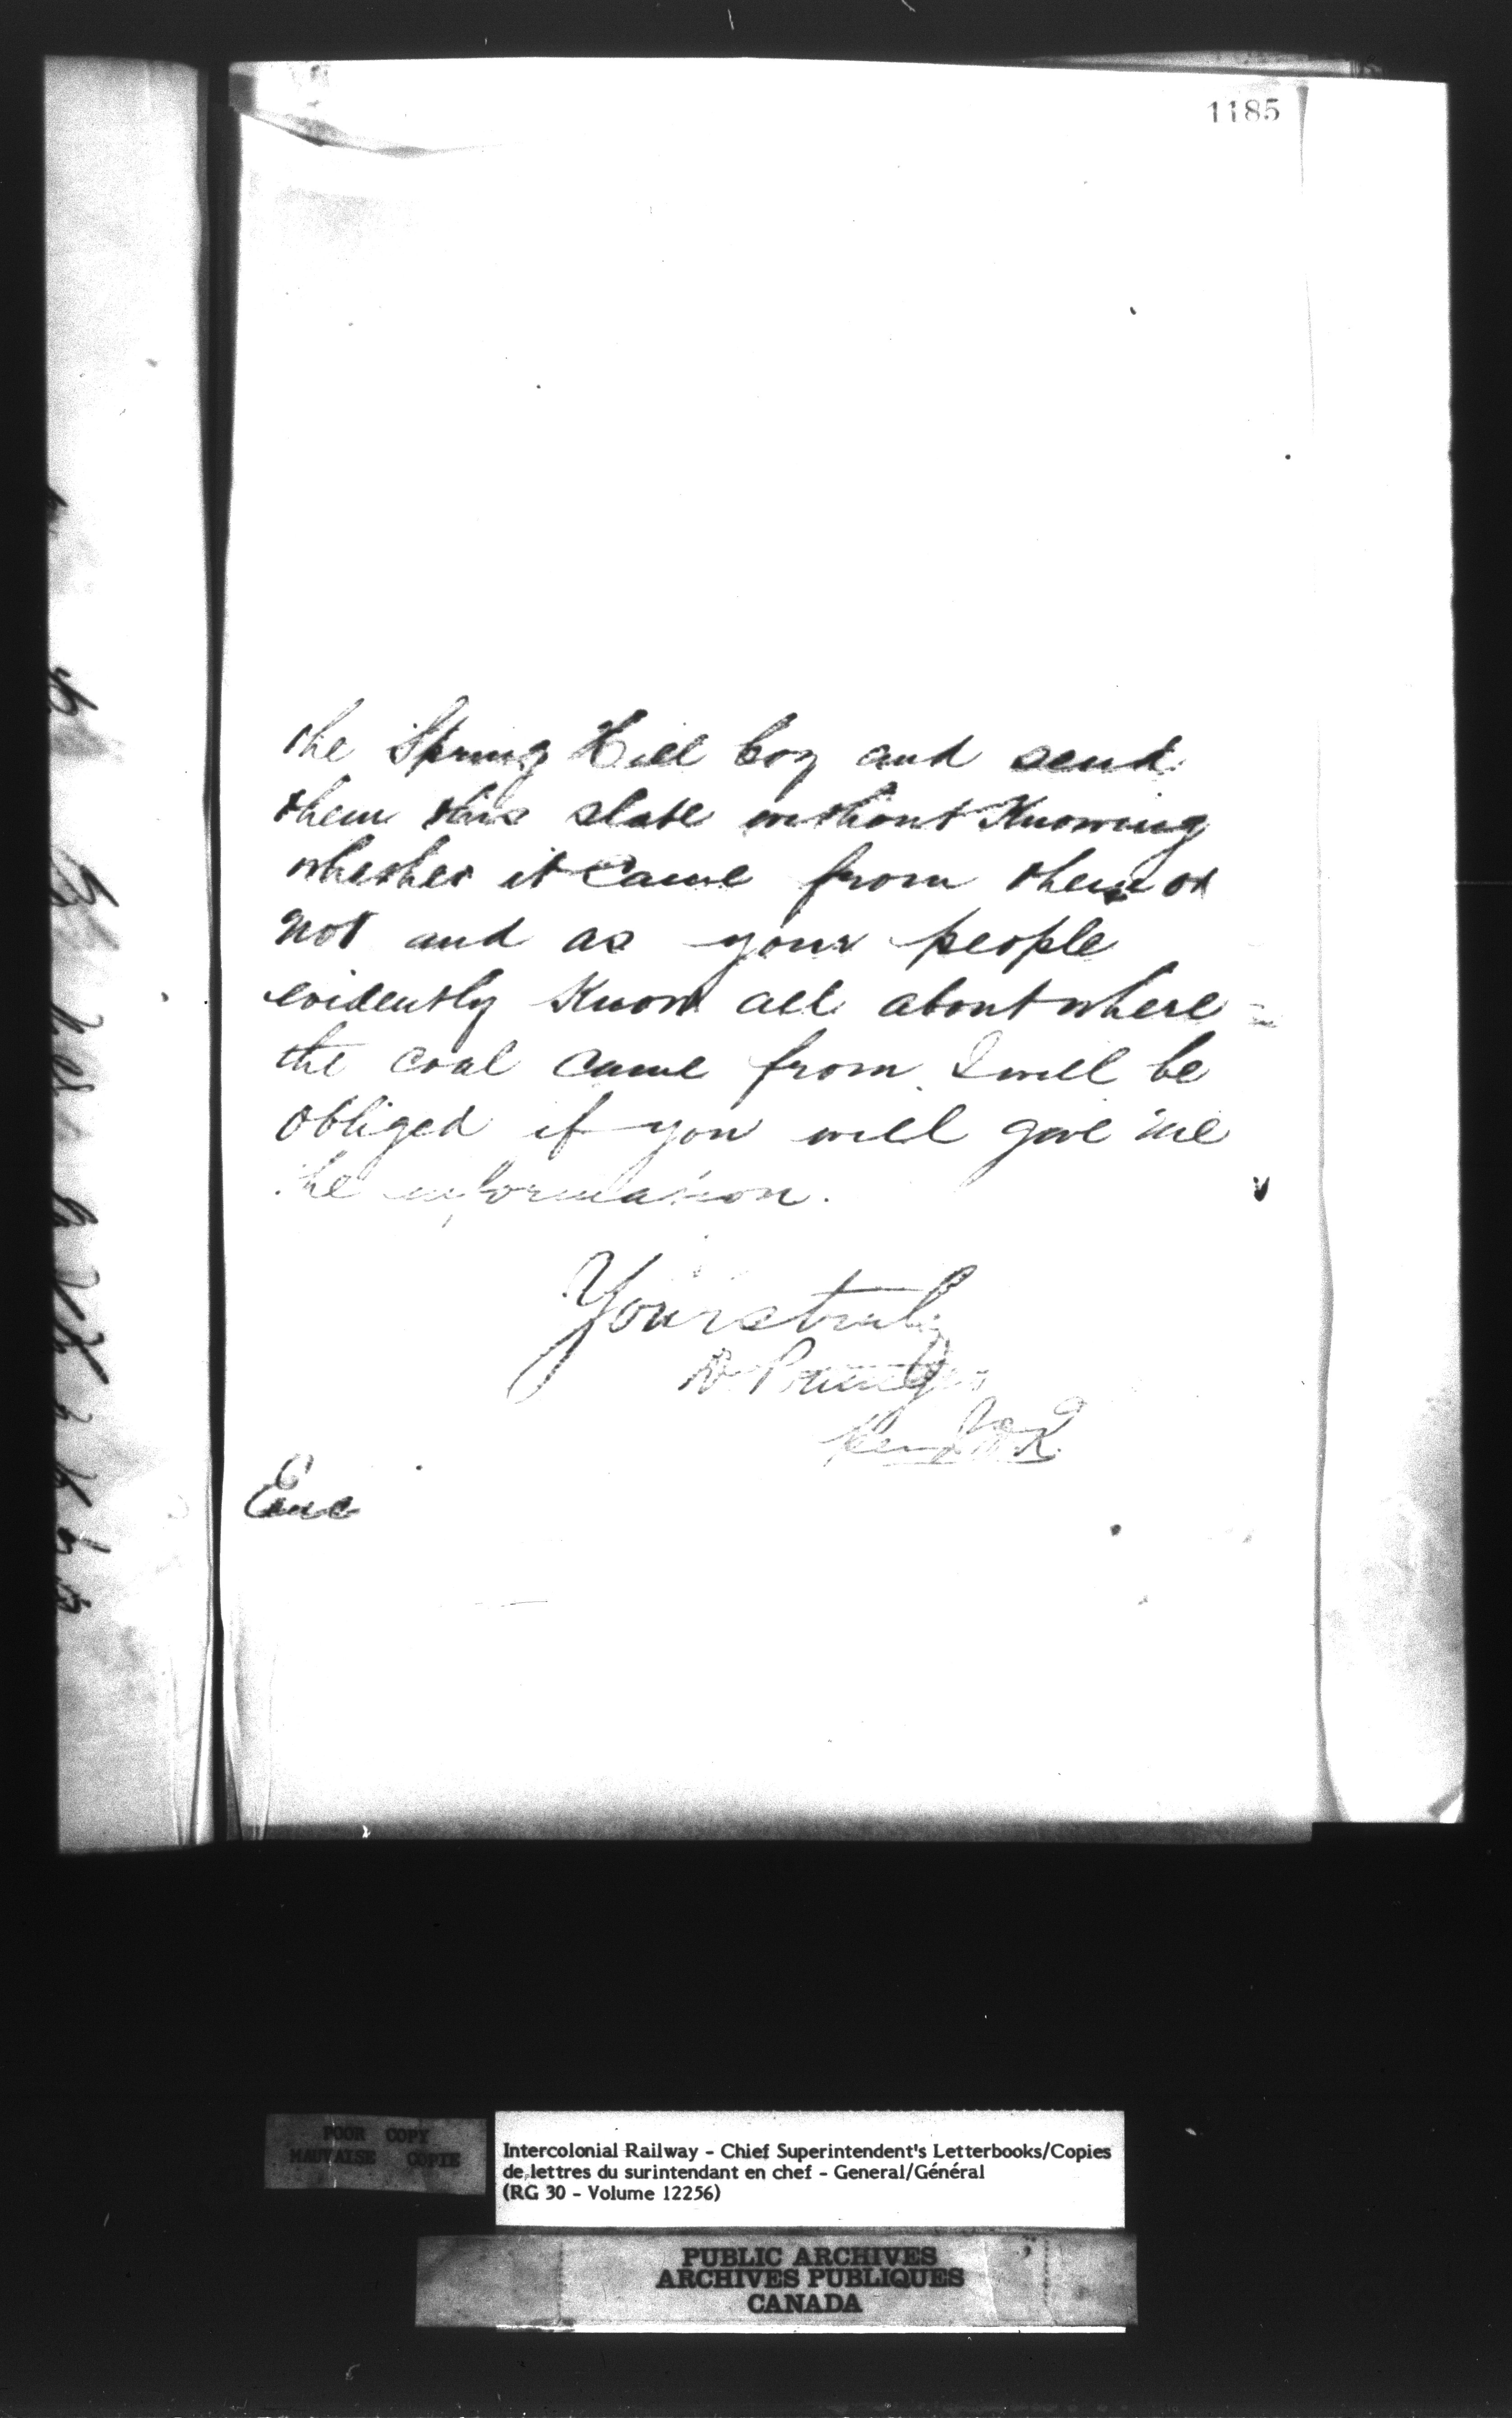 1185
the Spring Hill Coy and send
them this slate without Knowing
whether it Came from them or
not and as your people
evidently Know all about where
the coal came from I will be
obliged if you will give me
the information.
Yours truly
D Pottinger
Enc
POOR COPY
MAUVAISE COPIE
Intercolonial Railway - Chief Superintendent's Letterbooks/Copies
de lettres du surintendant en chef - General/Général
(RG 30 - Volume 12256)
PUBLIC ARCHIVES
ARCHIVES PUBLIQUES
CANADA